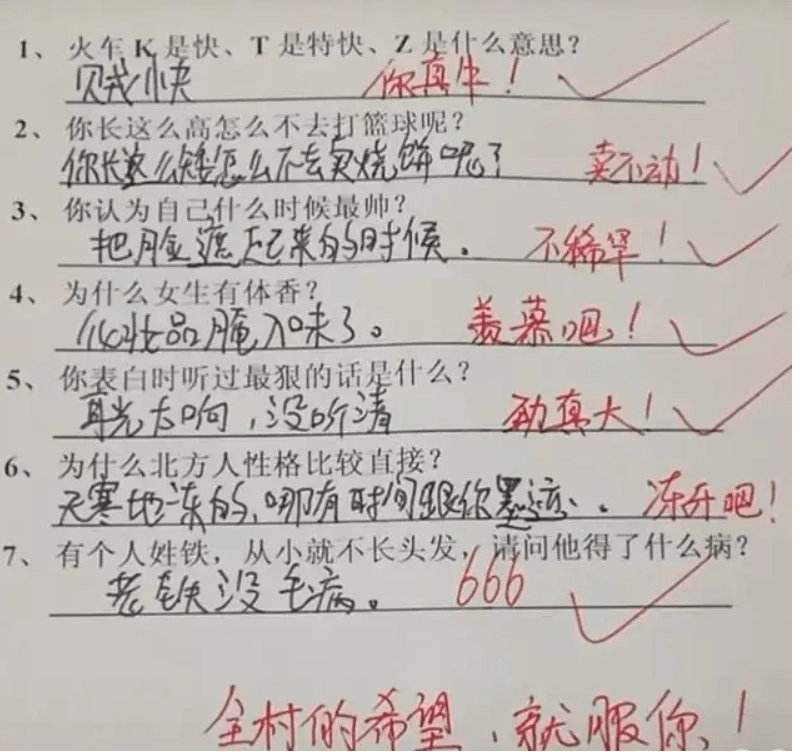 1、火车 K 是快、T 是特快、Z 是什么意思？
贼快 你真牛！
2、你长这么高怎么不去打篮球呢？
你长这么矮怎么不去卖烧饼呢？ 卖不动！
3、你认为自己什么时候最帅？
把脸遮起来的时候。 不稀罕！
4、为什么女生有体香？
化妆品腌入味了。 羡慕吧！
5、你表白时听过最狠的话是什么？
耳光太响，没听清 劲真大！
6、为什么北方人性格比较直接？
天寒地冻的，哪有时间跟你墨迹。 冻牙吧！
7、有个人姓铁，从小就不长头发，请问他得了什么病？
老铁没毛病。 666
全村的希望，就服你！